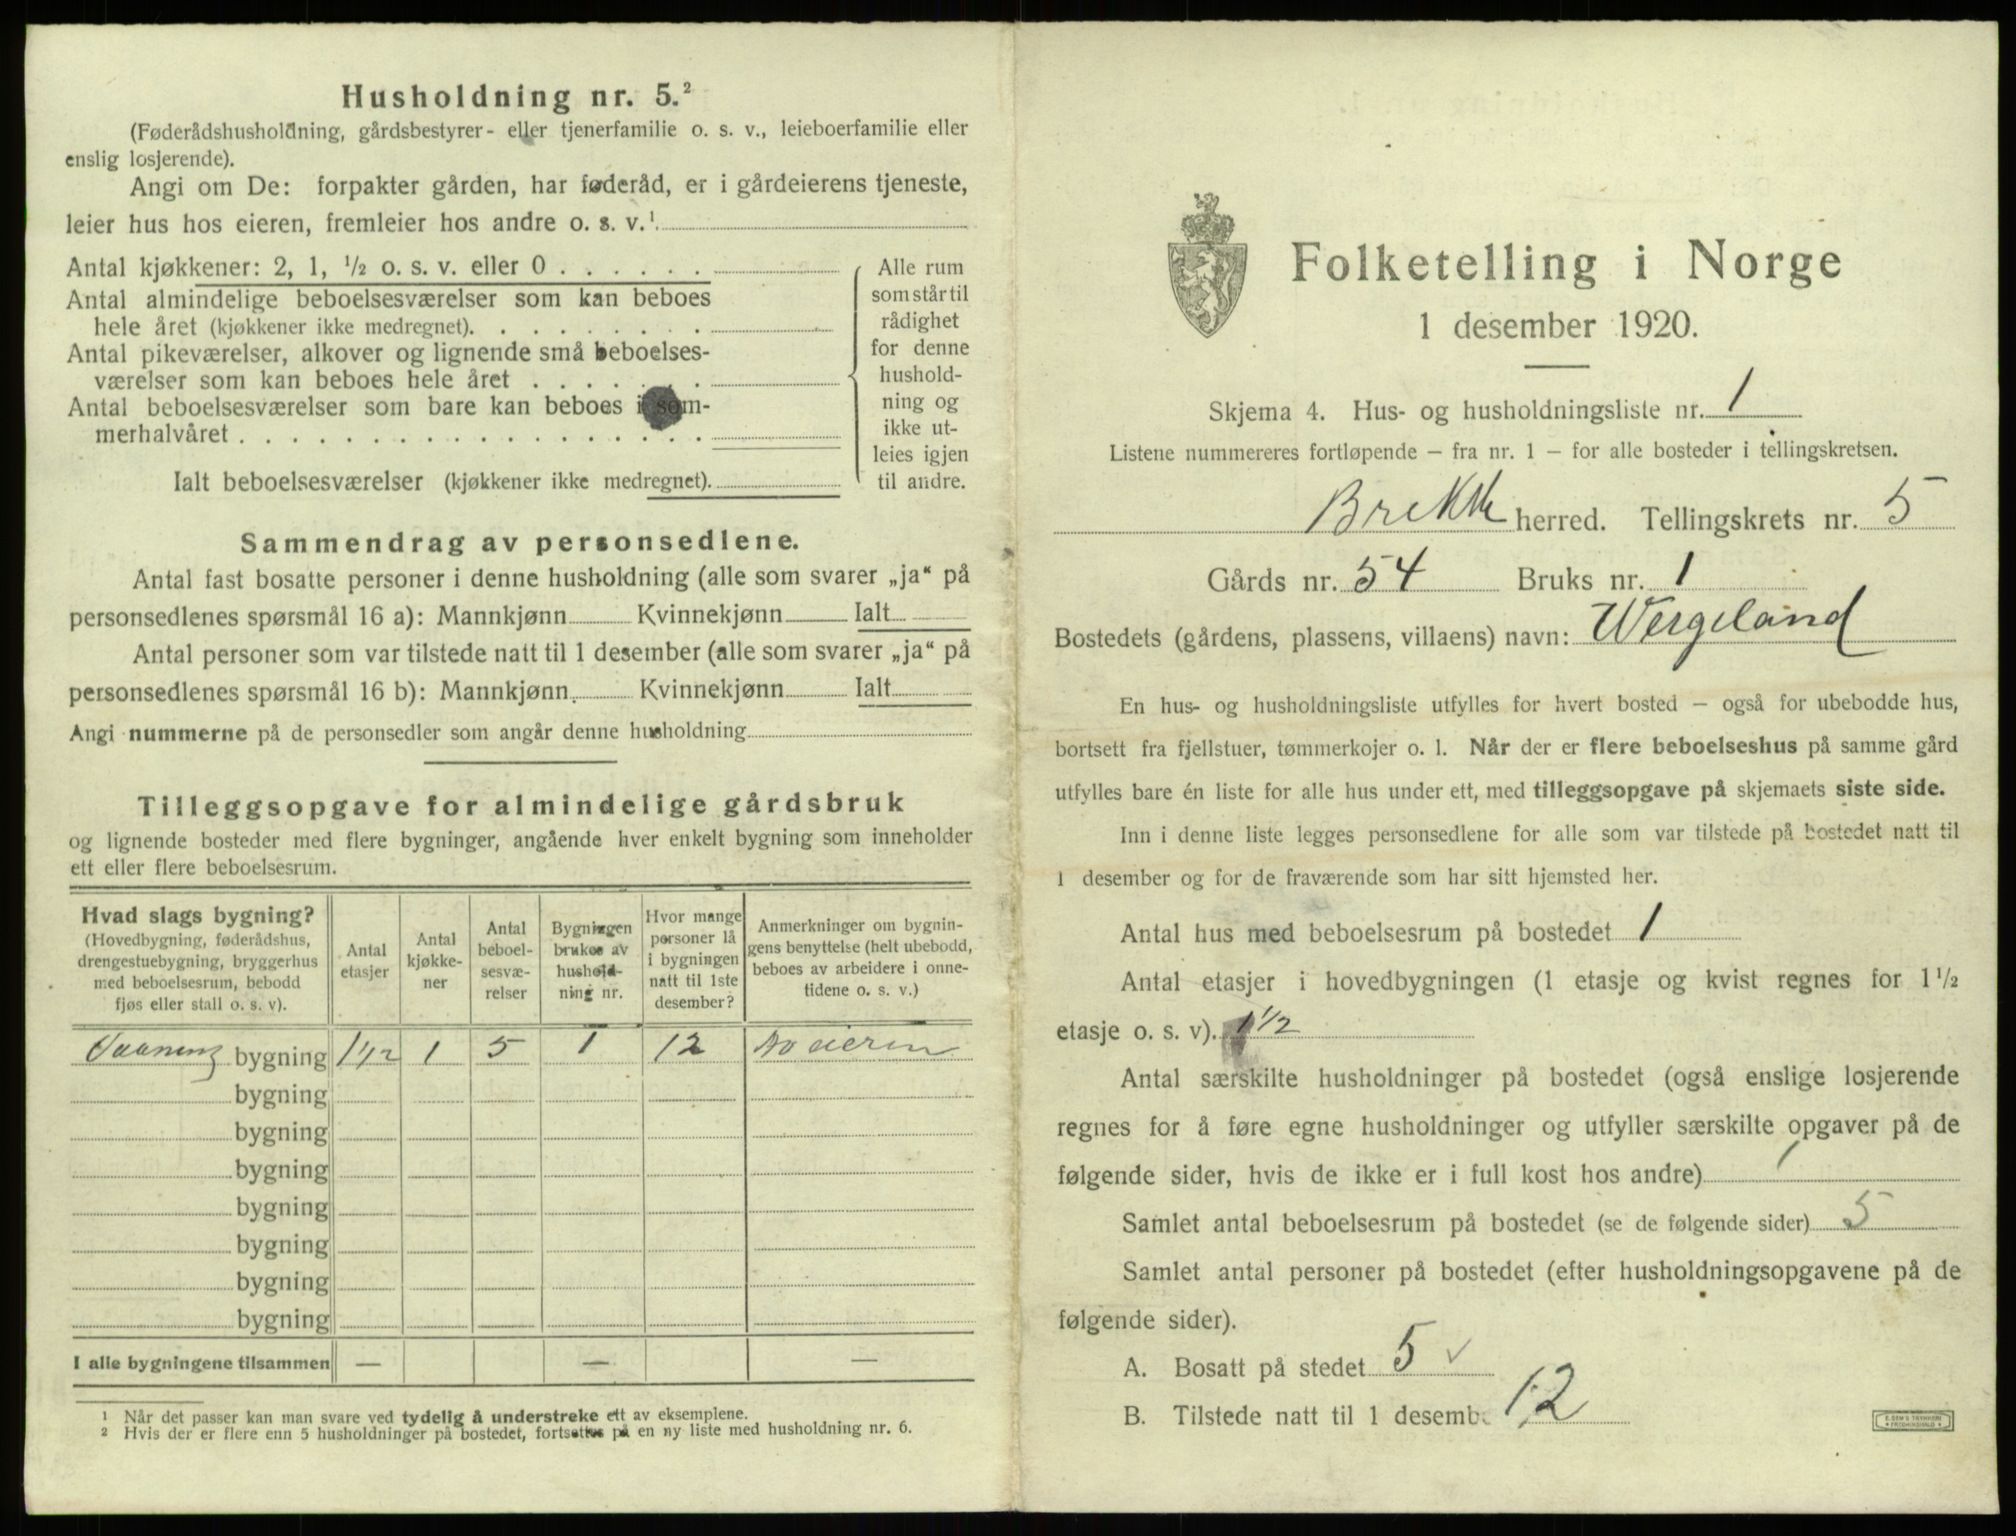 Husholdning nr. 5.²
(Føderådshusholdning, gårdsbestyrer- eller tjenerfamilie o. s. v., leieboerfamilie eller
enslig losjerende).
Angi om De: forpakter gården, har føderåd, er i gårdeierens tjeneste,
leier hus hos eieren, fremleier hos andre o. s. v.¹
Antal kjøkkener: 2, 1, ½ o. s. v. eller 0
Antal almindelige beboelsesværelser som kan beboes
hele året (kjøkkener ikke medregnet).
Antal pikeværelser, alkover og lignende små beboelses-
værelser som kan beboes hele året
Antal beboelsesværelser som bare kan beboes i som-
merhalvåret
Ialt beboelsesværelser (kjøkkener ikke medregnet).
Alle rum
som står til
rådighet
for denne
hushold-
ning og
ikke ut-
leies igjen
til andre.
Sammendrag av personsedlene.
Antal fast bosatte personer i denne husholdning (alle som svarer „ja“ på
personsedlenes spørsmål 16 a): Mannkjønn Kvinnekjønn Ialt
Antal personer som var tilstede natt til 1 desember (alle som svarer „ja“ på
personsedlenes spørsmål 16 b): Mannkjønn Kvinnekjønn Ialt
Angi nummerne på de personsedler som angår denne husholdning
Tilleggsopgave for almindelige gårdsbruk
og lignende bosteder med flere bygninger, angående hver enkelt bygning som inneholder
ett eller flere beboelsesrum.
Hvad slags bygning?
(Hovedbygning, føderådshus,
drengestuebygning, bryggerhus
med beboelsesrum, bebodd
fjøs eller stall o. s. v).
Antal
etasjer
Antal
kjøkke-
ner
Antal
beboel-
sesvæ-
relser
Bygningen
brukes av
hushold-
ning nr.
Hvor mange
personer lå
i bygningen
natt til 1ste
desember?
Anmerkninger om bygnin-
gens benyttelse (helt ubebodd,
beboes av arbeidere i onne-
tidene o. s. v.)
Vaanings bygning 1½ 1 5 1 12 Av eieren
bygning
bygning
bygning
bygning
bygning
bygning
bygning
I alle bygningene tilsammen — — —
¹ Når det passer kan man svare ved tydelig å understreke ett av eksemplene.
² Hvis der er flere enn 5 husholdninger på bostedet, fortsettes på en ny liste med husholdning nr. 6.
Folketelling i Norge
1 desember 1920.
Skjema 4. Hus- og husholdningsliste nr. 1
Listene nummereres fortløpende – fra nr. 1 – for alle bosteder i tellingskretsen.
Brekke herred. Tellingskrets nr. 5
Gårds nr. 54 Bruks nr. 1
Bostedets (gårdens, plassens, villaens) navn: Wergeland
En hus- og husholdningsliste utfylles for hvert bosted – også for ubebodde hus,
bortsett fra fjellstuer, tømmerkojer o. l. Når der er flere beboelseshus på samme gård
utfylles bare én liste for alle hus under ett, med tilleggsopgave på skjemaets siste side.
Inn i denne liste legges personsedlene for alle som var tilstede på bostedet natt til
1 desember og for de fraværende som har sitt hjemsted her.
Antal hus med beboelsesrum på bostedet 1
Antal etasjer i hovedbygningen (1 etasje og kvist regnes for 1½
etasje o. s. v). 1½
Antal særskilte husholdninger på bostedet (også enslige losjerende
regnes for å føre egne husholdninger og utfyller særskilte opgaver på de
følgende sider, hvis de ikke er i full kost hos andre) 1
Samlet antal beboelsesrum på bostedet (se de følgende sider) 5
Samlet antal personer på bostedet (efter husholdningsopgavene på de
følgende sider).
A. Bosatt på stedet 5 ✓
B. Tilstede natt til 1 desember 12